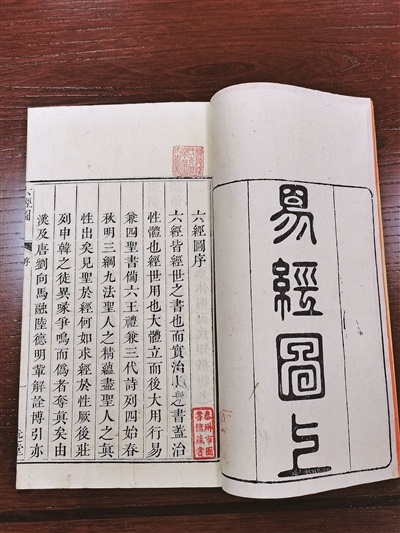 易經圖上
六經圖序
六經皆經世之書也而實治心之書蓋治
性體也經世用也大體立而後大用行易
兼四聖書備六王禮兼三代詩列四始春
秋明三綱九法聖人之精蘊盡聖人之真
性出矣見聖於經何如求經於性厥後莊
列申韓之徒異喙爭鳴而僞者奪真矣由
漢及唐劉向馬融陸德明輩解詮博引亦
六經圖
序
泰州市圖
書館藏書